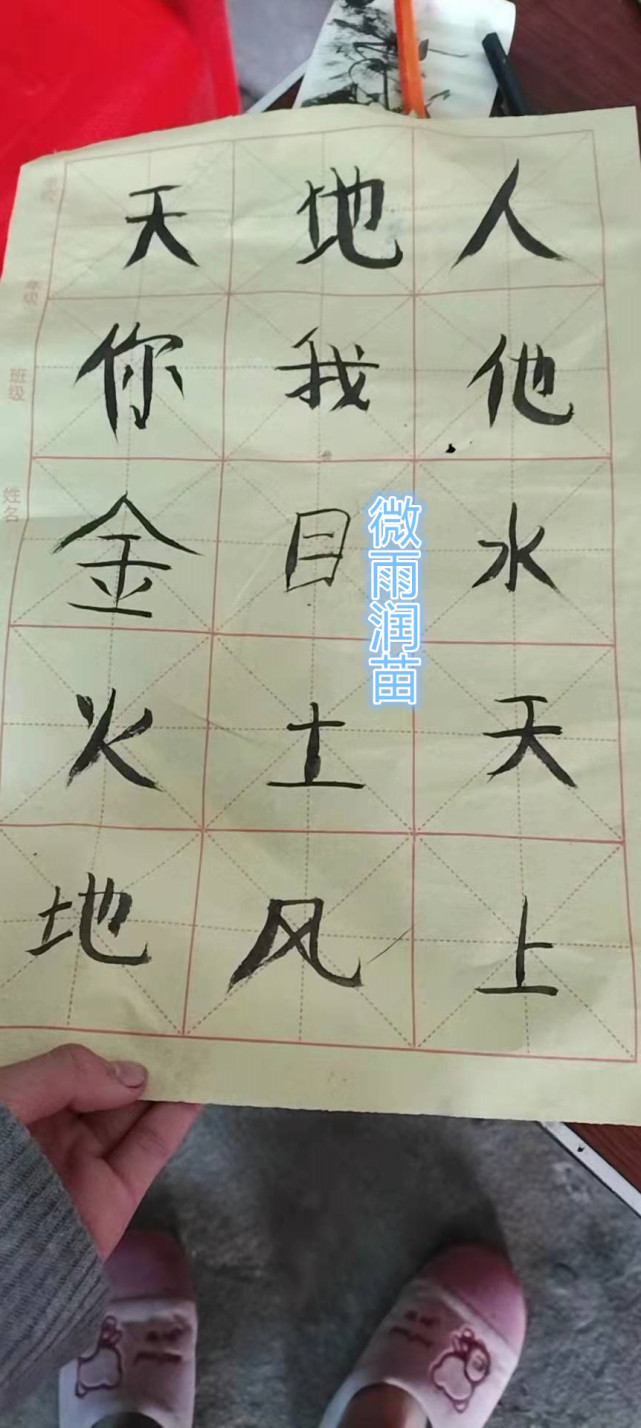 天地人
你我他
金日水
火土天
地风上
微雨润苗
班级
姓名